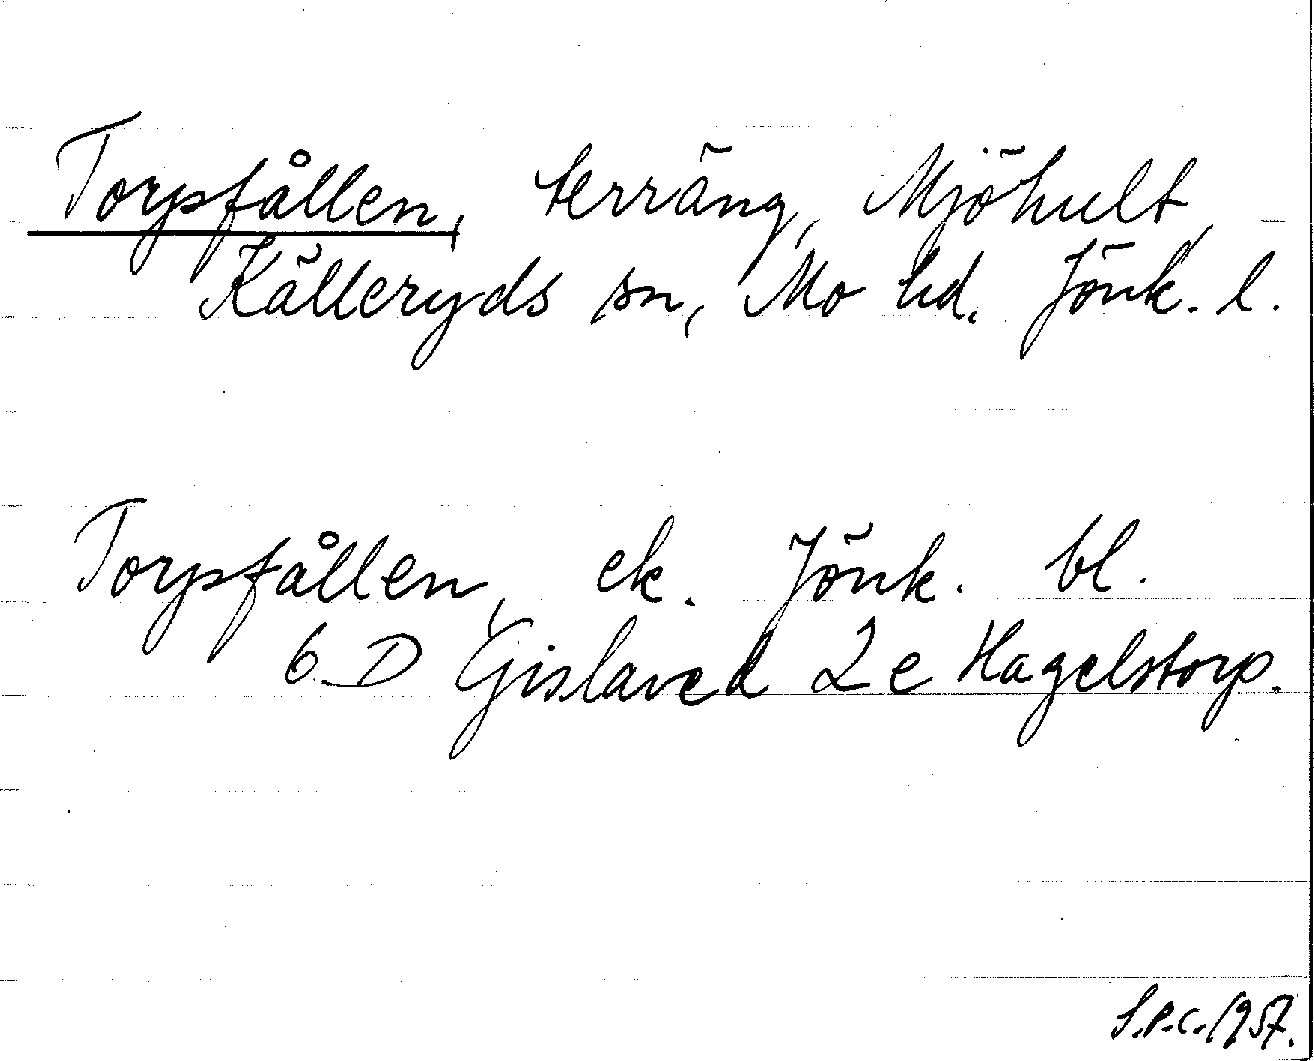 Torpsfållen, terräng, Mjöhult,
Källeryds sn, Mo hd. Jönk. l.
Torpsfållen, ek. Jönk. bl.
6 D Gislaved 2 e Hagelstorp.
S.P.C. 1957.